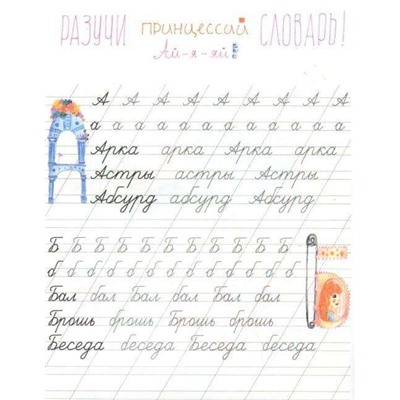 РАЗУЧИ ПРИНЦЕССИЙ СЛОВАРЬ!
Ай-я-яй
А А А А А А А А А А
а а а а а а а а а а а а
Арка арка Арка арка
Астры астры Астры
Абсурд абсурд Абсурд
Б Б Б Б Б Б Б Б Б Б
б б б б б б б б б б б б
Бал бал Бал бал Бал бал
Брошь брошь Брошь брошь
Беседа беседа Беседа беседа